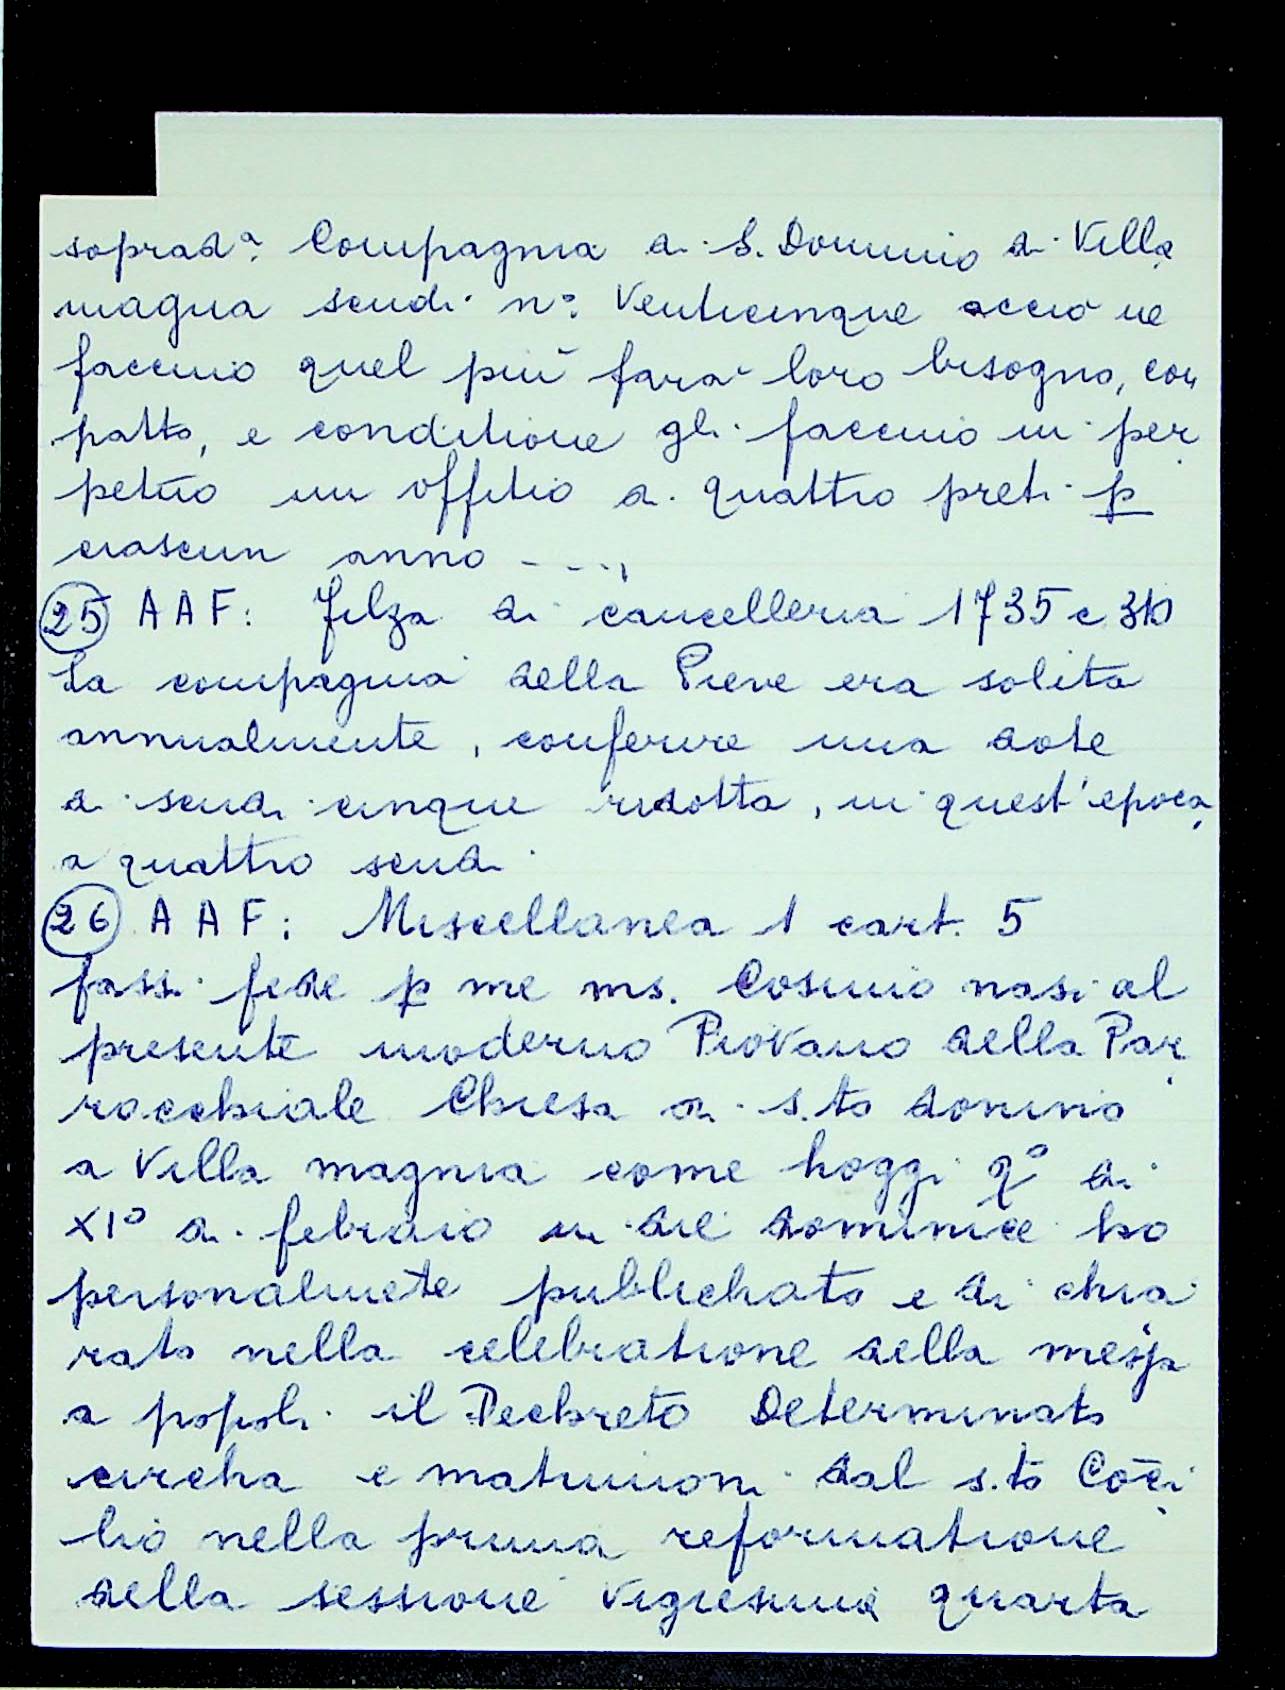 soprad.ª Compagnia di S. Donnino di Villa
magna scudi n.º Venticinque acciò ne
faccino quel più farà loro bisogno, con
patto, e conditione gli faccino in per
petuo un offitio di quattro preti p
ciascun anno ----,
25 AAF: Filza di cancelleria 1735 c 310
La compagnia della Pieve era solita
annualmente, conferire una dote
di scudi cinque ridotta, in quest'epoca,
a quattro scudi
26 AAF: Miscellanea 1 cart. 5
fassi fede p me ms. Cosimo nasi al
presente moderno Piovano della Par
rocchiale Chiesa di s.to donnino
a Villa magnia come hoggi qº di
XIº di febraio in die dominice ho
personalmete publichato e di chia
rato nella celebratione della messa
a popoli il Dechreto Determinato
circha e matrimoni dal s.to Cōci
lio nella prima reformatione
della sessione vigiesima quarta